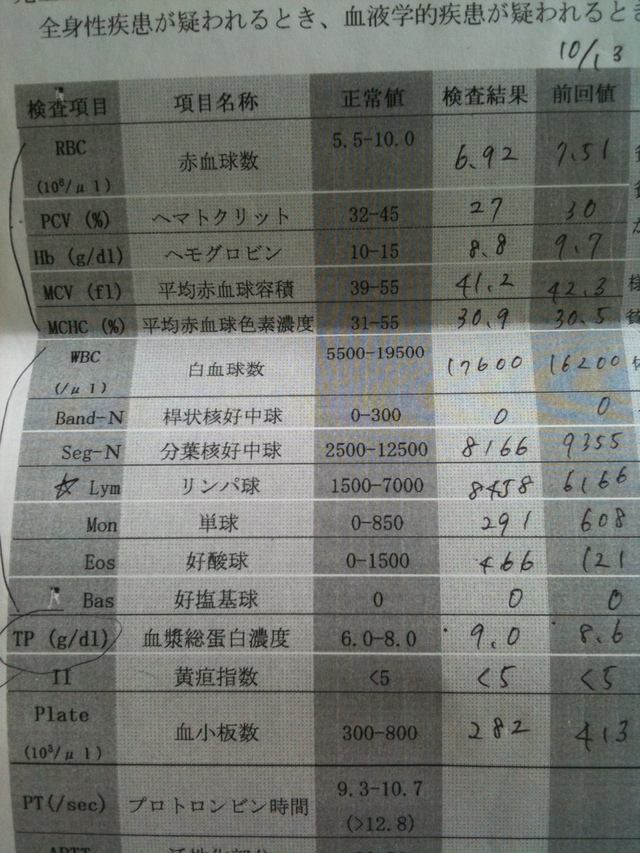 全身性疾患が疑われるとき、血液学的疾患が疑われるとき
10/13
検査項目 項目名称 正常値 検査結果 前回値
RBC (10⁶/μl) 赤血球数 5.5-10.0 6.92 7.51
PCV (%) ヘマトクリット 32-45 27 30
Hb (g/dl) ヘモグロビン 10-15 8.8 9.7
MCV (fl) 平均赤血球容積 39-55 41.2 42.3
MCHC (%) 平均赤血球色素濃度 31-55 30.9 30.5
WBC (/μl) 白血球数 5500-19500 17600 16200
Band-N 桿状核好中球 0-300 0 0
Seg-N 分葉核好中球 2500-12500 8166 9355
☆ Lym リンパ球 1500-7000 8458 6166
Mon 単球 0-850 291 608
Eos 好酸球 0-1500 466 121
Bas 好塩基球 0 0 0
TP (g/dl) 血漿総蛋白濃度 6.0-8.0 9.0 8.6
II 黄疸指数 <5 <5 <5
Plate (10³/μl) 血小板数 300-800 282 413
PT(/sec) プロトロンビン時間 9.3-10.7 (>12.8)